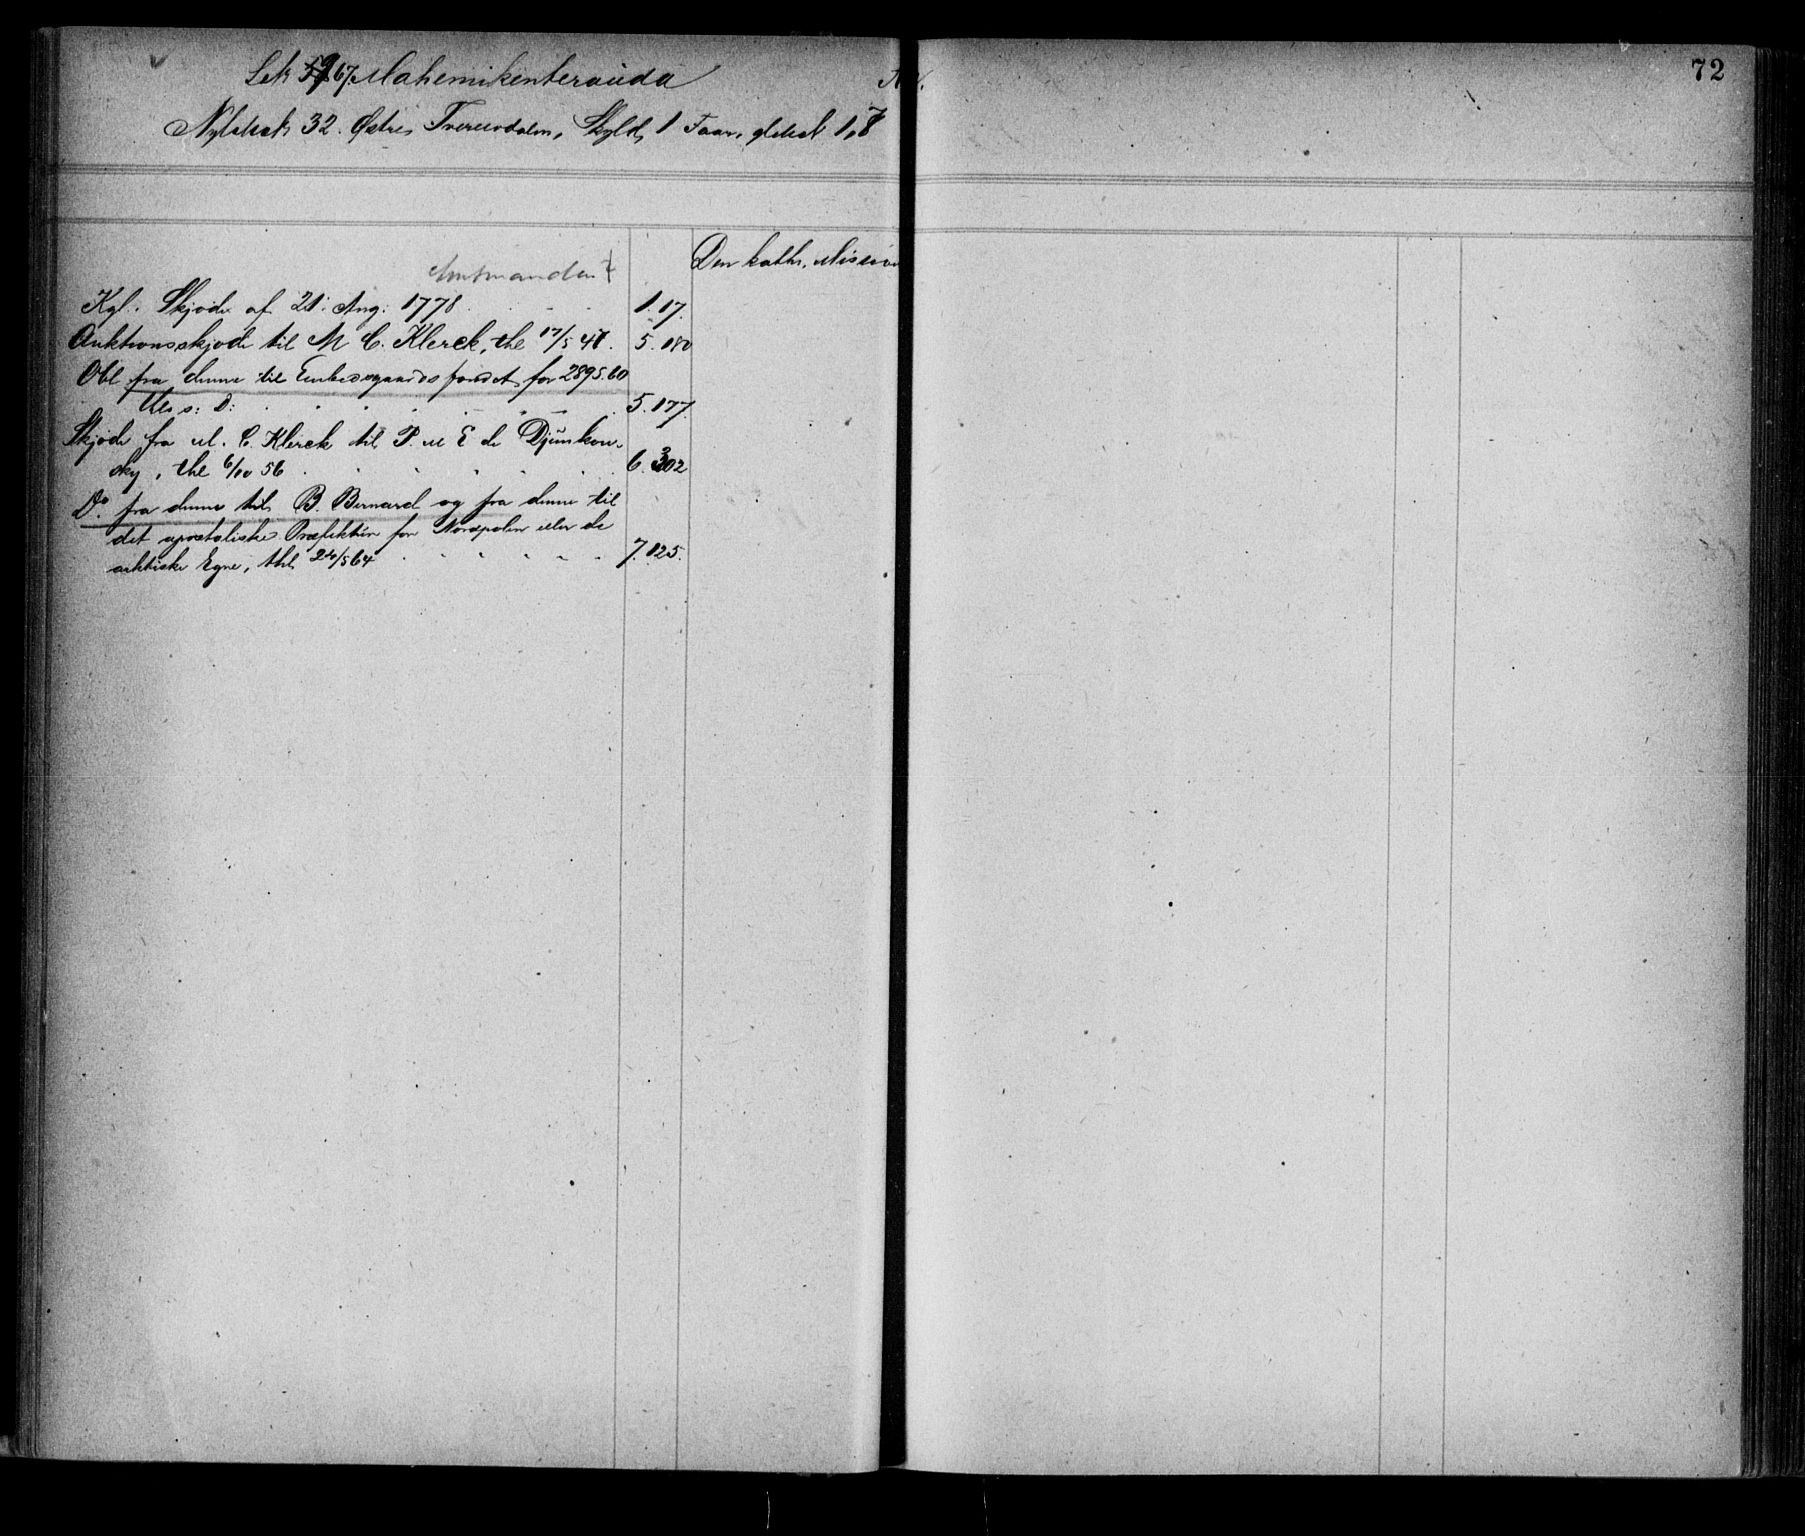 72
Mahemikenterauda
32. Østre Tverelvdalen, Skyld 1
Den kath. Mission
Amtmanden
Kgl. Skjøde af 21. Aug: 1778 1.17.
Auktionsskjøde til M C. Klerck, thl 17/5 47. 5.180
Obl fra denne til Embedsgaardsfondet for 2895.60
5.177.
Skjøde fra M. C. Klerck til P. M E de Djunkow-
sky, thl 6/10 56 6.302
Do fra denne til B. Bernard og fra denne til
det apostoliske Præfektur for Nordpolen eller de
arktiske Egne, thl 24/5 64 7.125.